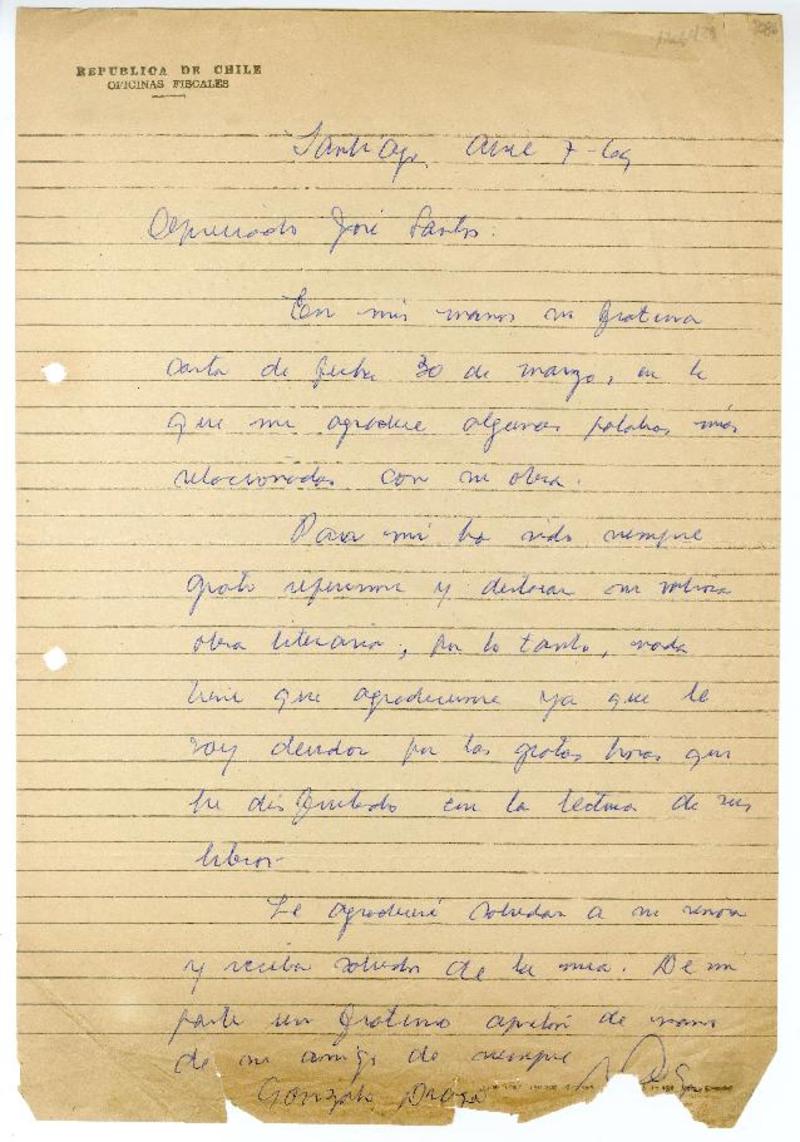 REPUBLICA DE CHILE
OFICINAS FISCALES
Santiago, Abril 7-69
Apreciado José Santos:
En mis manos su fraterna
carta de fecha 30 de marzo, en la
que me agradece algunas palabras mías
relacionadas con su obra.
Para mí ha sido siempre
grato referirme y destacar su valiosa
obra literaria; por lo tanto, nada
tiene que agradecerme ya que le
soy deudor por las gratas horas que
he disfrutado con la lectura de sus
libros.
Le agradeceré saludar a su señora
y reciba saludos de la mía. De mi
parte un fraterno apretón de manos
de su amigo de siempre
Gonzalo Drago